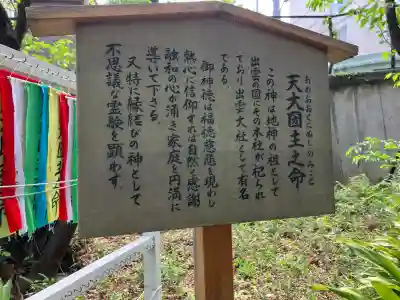 おおあめくにぬしのみこと
天大國主之命
この神は地神の祖として
出雲の國にその本社が祀られ
ており 出雲大社として有名
である。
御神徳は福徳慈愍を現わし
熱心に信仰すれば自然と感謝
融和の心が涌き家庭を円満に
導いて下さる。
又特に縁結びの神として
不思議な霊験を顕わす。